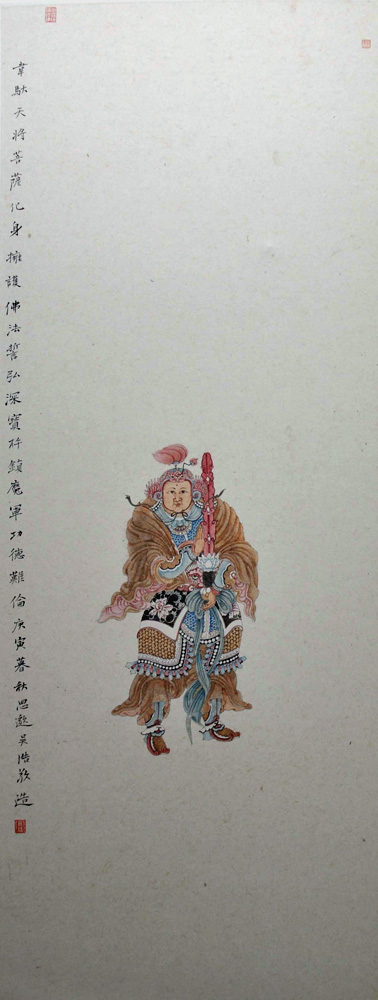 韋馱天將菩薩化身擁護佛法誓弘深寶杵鎮魔軍功德難倫庚寅暮秋思邈吳浩敬造